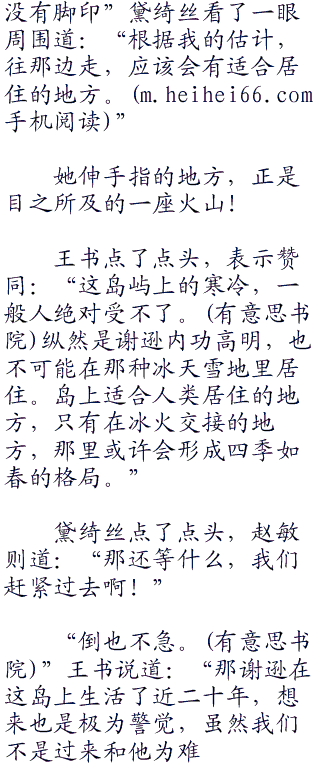 没有脚印”黛绮丝看了一眼
周围道：“根据我的估计，
往那边走，应该会有适合居
住的地方。(m.heihei66.com
手机阅读)”
她伸手指的地方，正是
目之所及的一座火山！
王书点了点头，表示赞
同：“这岛屿上的寒冷，一
般人绝对受不了。(有意思书
院)纵然是谢逊内功高明，也
不可能在那种冰天雪地里居
住。岛上适合人类居住的地
方，只有在冰火交接的地
方，那里或许会形成四季如
春的格局。”
黛绮丝点了点头，赵敏
则道：“那还等什么，我们
赶紧过去啊！”
“倒也不急。(有意思书
院)”王书说道：“那谢逊在
这岛上生活了近二十年，想
来也是极为警觉，虽然我们
不是过来和他为难